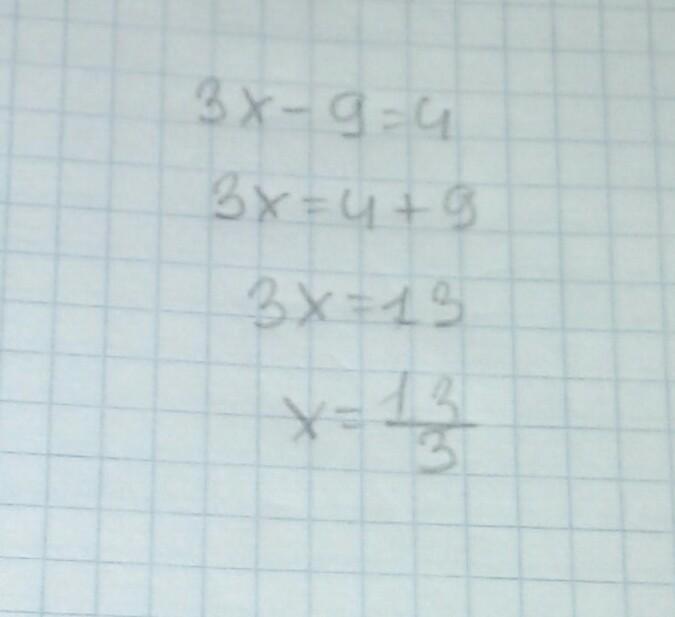 3x - 9 = 4
3x = 4 + 9
3x = 13
x = 13/3